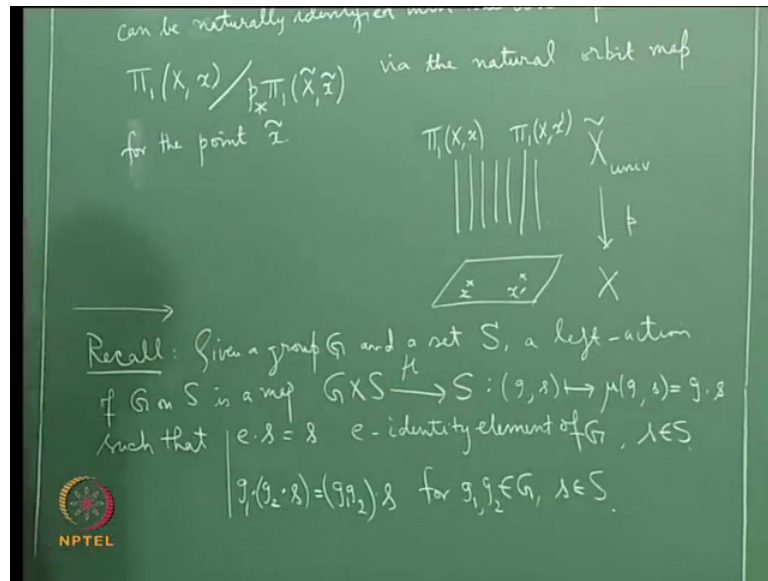 can be naturally identified
π₁(X, x) / p_* π₁(X̃, x̃) via the natural orbit map
for the point x̃.
π₁(X,x) π₁(X,x') X̃_univ
p
x x' X
Recall: Given a group G and a set S, a left-action
of G on S is a map G×S —μ→ S : (g, s) ↦ μ(g, s) = g·s
such that e·s = s e-identity element of G, s∈S
g₁·(g₂·s) = (g₁g₂)·s for g₁, g₂ ∈ G, s∈S.
NPTEL